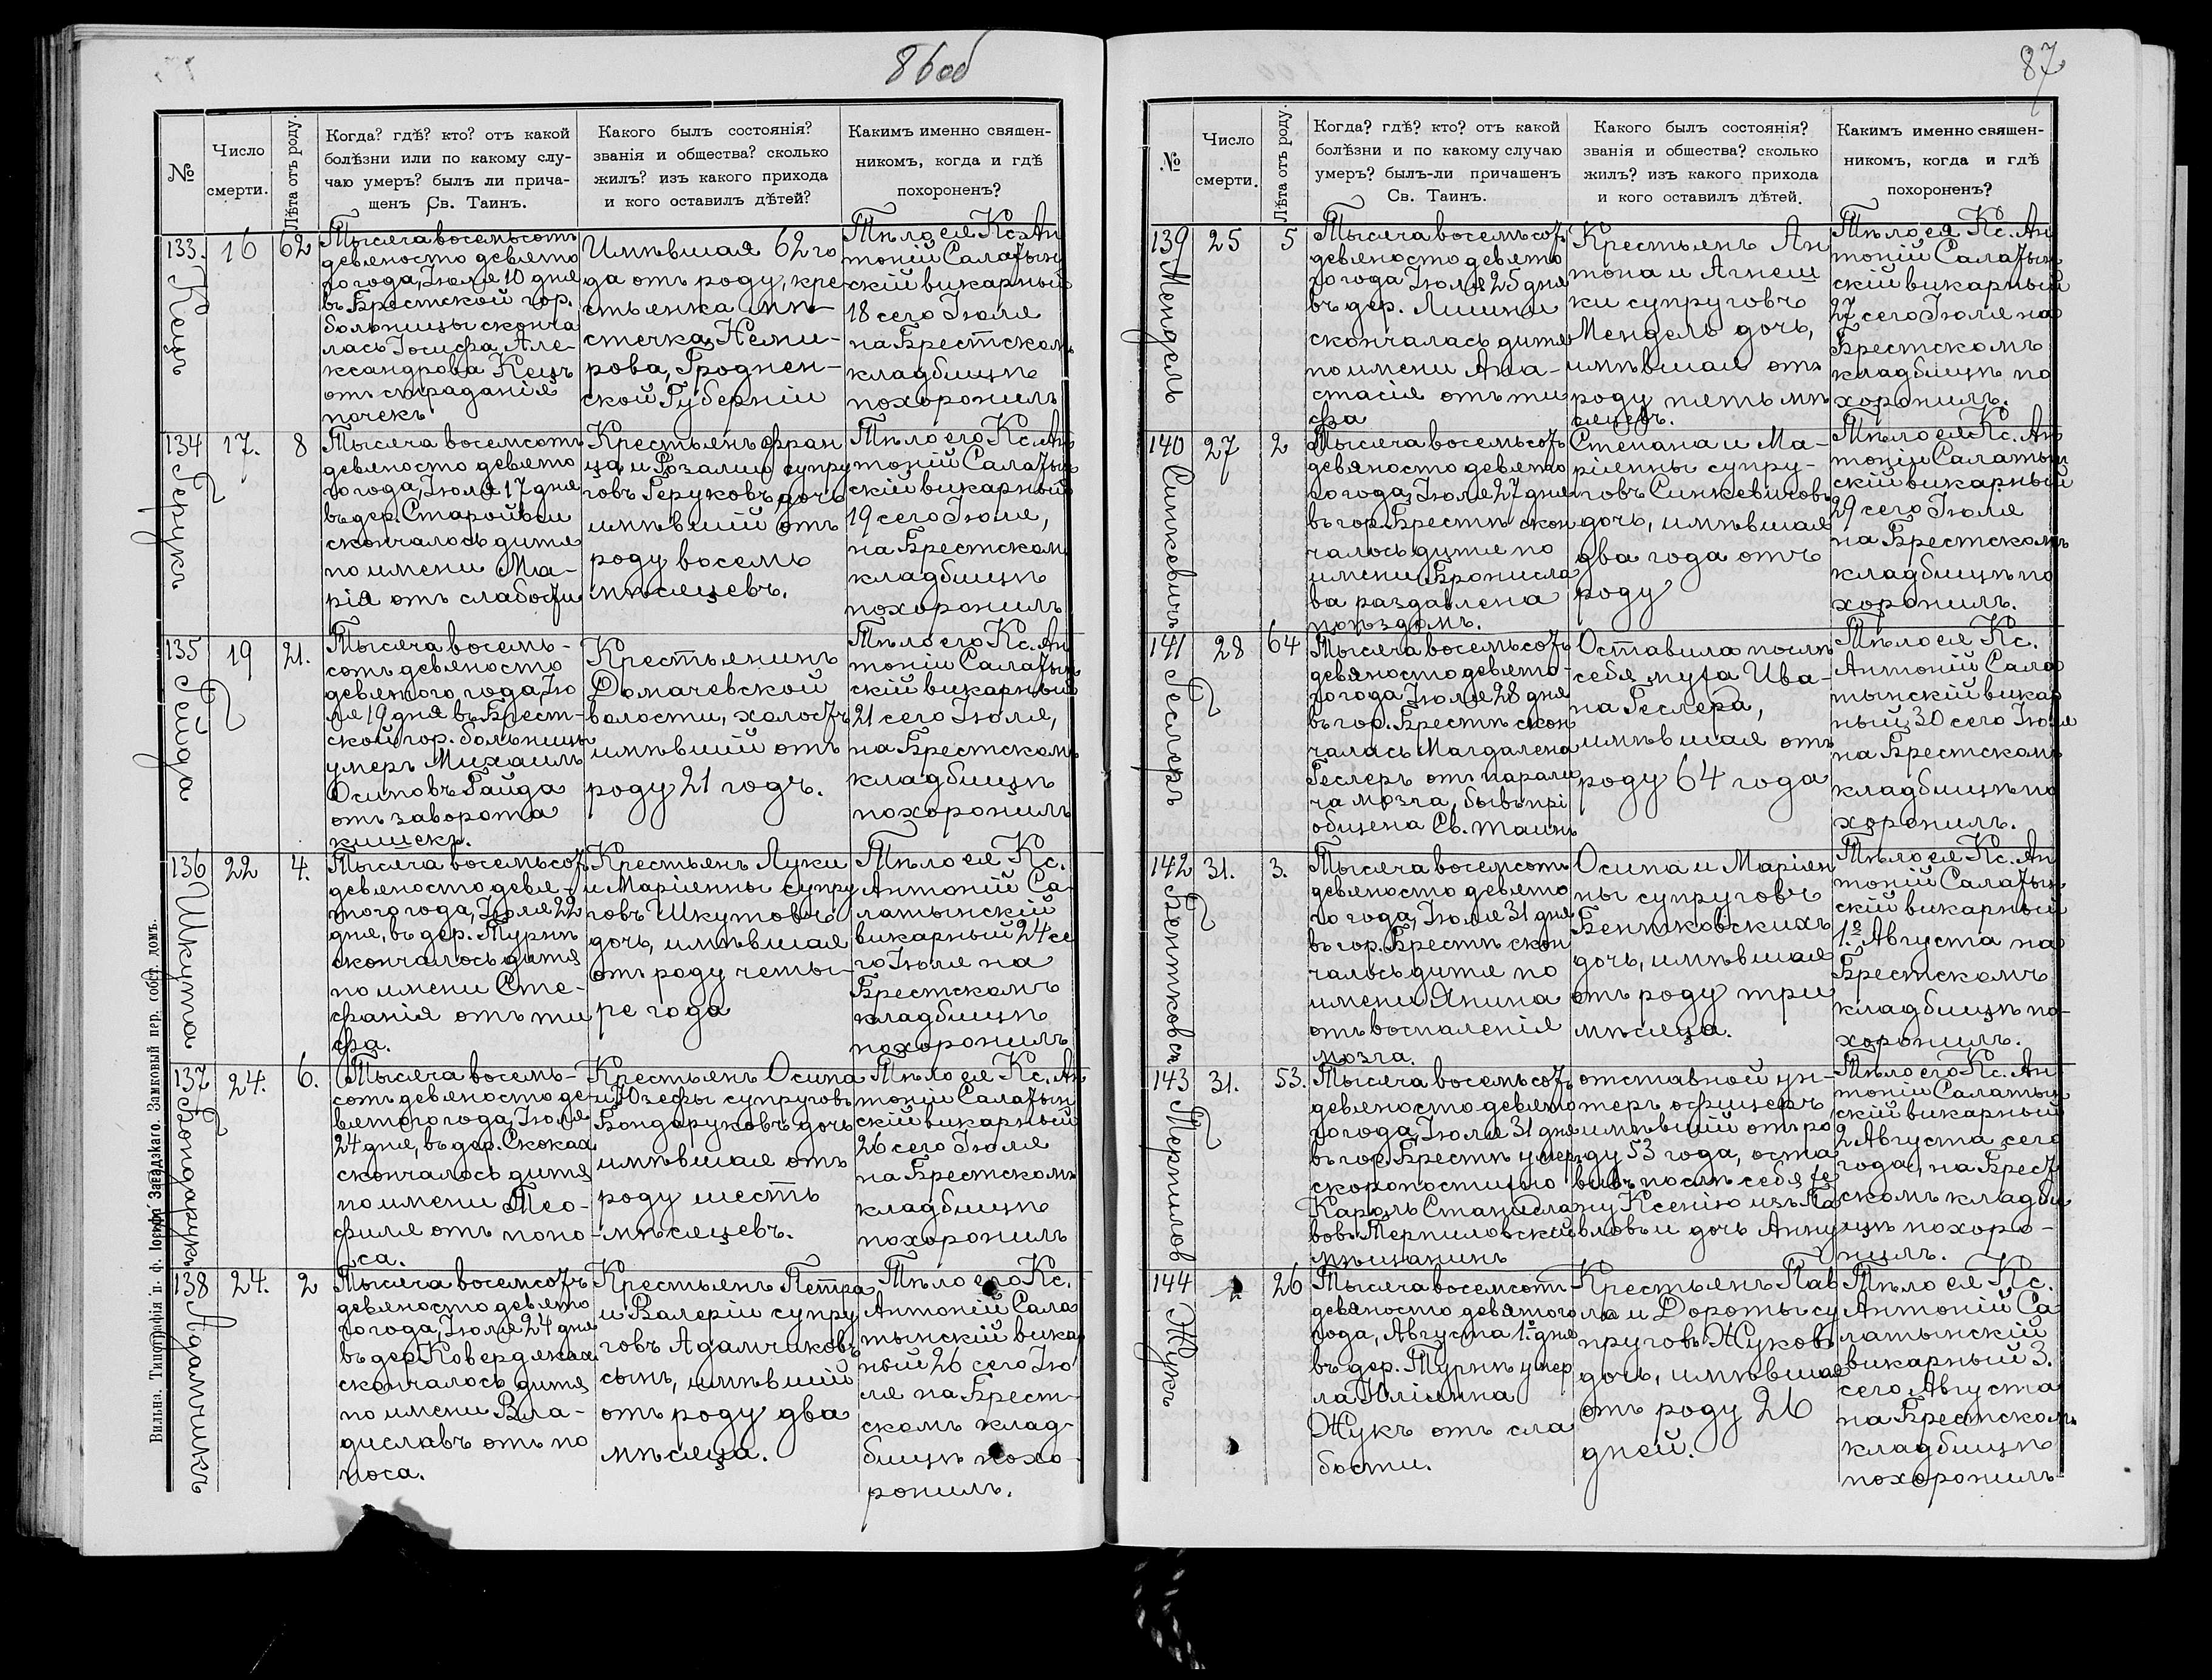 86об
№
Число
смерти.
Лѣта отъ роду.
Когда? гдѣ? кто? отъ какой
болѣзни или по какому слу-
чаю умеръ? былъ ли прича-
щенъ Св. Таинъ.
Какого былъ состоянія?
званія и общества? сколько
жилъ? изъ какого прихода
и кого оставилъ дѣтей?
Какимъ именно священ-
никомъ, когда и гдѣ
похороненъ?
133.
Кецъ
16
62
Тысяча восемьсотъ
девяносто девято
го года, Іюля 10 дня
въ Брестской гор.
больницы сконча
лась Іосифа Але-
ксандрова Кецъ
отъ страданія
почекъ
Имѣвшая 62 го
да отъ роду, кре
стьянка мѣ-
стечка Неми-
рова, Гроднен-
ской Губерніи
Тѣло ея Кс. Ан
тоній Салатын
скій викарный
18 сего Іюля
на Брестскомъ
кладбищѣ
похоронилъ
134
Герукъ
17.
8
Тысяча восемсотъ
девяносто девято
го года, Іюля 17 дня
въ дер. Старойвси
скончалось дитя
по имени Ма-
рія отъ слабости
Крестьянъ Фран
ца и Розаліи супру
говъ Геруковъ, дочь
имѣвшій отъ
роду восемь
мѣсяцевъ.
Тѣло его Кс. Ан
тоній Салатын
скій викарный
19 сего Іюля,
на Брестском
кладбищѣ
похоронилъ
135
Гейда
19
21.
Тысяча восемь-
сотъ девяносто
девятого года, Ію
ля 19 дня въ Брест-
ской гор. больницы
умеръ Михаилъ
Осиповъ Гайда
отъ заворота
кишекъ.
Крестьянинъ
Домачевской
волости, холостъ
имѣвшій отъ
роду 21 годъ.
Тѣло его Кс. Ан
тоній Салатын
скій викарный
21 сего Іюля,
на Брестскомъ
кладбищѣ
похоронилъ
136
Шкута
22
4.
Тысяча восемьсот
девяносто девя-
того года, Іюля 22
дня, въ дер. Турнѣ
скончалось дитя
по имени Сте-
фанія отъ ти
фа.
Крестьянъ Луки
и Маріанны супру
говъ Шкутовъ
дочь, имѣвшая
отъ роду четы-
ре года
Тѣло ея Кс.
Антоній Са-
латынскій
викарный 24 се
го Іюля на
Брестскомъ
кладбищѣ
похоронилъ
137
Бондарукъ
24.
6.
Тысяча восемь-
сотъ девяносто де-
вятого года, Іюля
24 дня, въ дер. Скоках
скончалось дитя
по имени Тео-
филя отъ поно-
са.
Крестьянъ Осипа
и Юзефы супруговъ
Бондаруковъ дочь
имѣвшая отъ
роду шесть
мѣсяцевъ.
Тѣло ея Кс. Ан
тоній Салатын
скій викарный
26 сего Іюля
на Брестскомъ
кладбищѣ
похоронилъ
138
Адамчикъ
24.
2
Тысяча восемсотъ
девяносто девято
го года, Іюля 24 дня
въ дер. Ковердяках
скончалось дитя
по имени Вла-
диславъ отъ по
носа.
Крестьянъ Петра
и Валеріи супру
говъ Адамчиковъ
сынъ, имѣвшій
отъ роду два
мѣсяца.
Тѣло его Кс.
Антоній Сала
тынскій вика
ный 26 сего Ію
ля на Брест-
скомъ клад-
бищѣ похо
ронилъ.
Вильна. Типографія п. ф. Іосифа Завадзкаго. Замковый пер. собст. домъ.
87
№
Число
смерти.
Лѣта отъ роду.
Когда? гдѣ? кто? отъ какой
болѣзни и по какому случаю
умеръ? былъ-ли причащенъ
Св. Таинъ.
Какого былъ состоянія?
званія и общества? сколько
жилъ? изъ какого прихода
и кого оставилъ дѣтей.
Какимъ именно священ-
никомъ, когда и гдѣ
похороненъ?
139
Мендель
25
5
Тысяча восемьсот
девяносто девято
го года Іюля 25 дня
въ дер.
скончалась дитя
по имени Ана-
стасія отъ ти
фа
Крестьянъ Ан
тона и Агнеш
ки супруговъ
Мендель дочь,
имѣвшая отъ
роду пять мѣ
сяцевъ.
Тѣло ея Кс. Ан
тоній Салатын
скій викарный
27 сего Іюля на
Брестскомъ
кладбищѣ по
хоронилъ.
140
Синкевичъ
27
2
Тысяча восемьсот
девяносто девято
го года, Іюля 27 дня
въ гор. Брестѣ скон
чалось дитя по
имени Бронисла
ва раздавлена
поѣздомъ.
Степана и Ма-
ріянны супру-
говъ Синкевичовъ
дочь, имѣвшая
два года отъ
роду
Тѣло ея Кс. Ан
тоній Салатын
скій викарный
29 сего Іюля
на Брестскомъ
кладбищѣ по
хоронилъ.
141
Геслеръ
28
64
Тысяча восемьсотъ
девяносто девято-
го года Іюля 28 дня
въ гор. Брестѣ скон
чалась Магдалена
Геслеръ отъ парали
ча мозга, бывъ прі
общена Св. таинъ
Оставила послѣ
себя мужа Ива-
на Геслера,
имѣвшая отъ
роду 64 года
Тѣло ея Кс.
Антоній Сала
тынскій викар
ный 30 сего Іюля
на Брестскомъ
кладбищѣ по
хоронилъ.
142
Бентковск
31.
3.
Тысяча восемсотъ
девяносто девято
го года, Іюля 31 дня
въ гор. Брестѣ скон
чалось дитя по
имени Янина
отъ воспаленія
мозга.
Осипа и Маріян
ны супруговъ
Бентковскихъ
дочь, имѣвшая
отъ роду три
мѣсяца.
Тѣло ея Кс. Ан
тоній Салатын
скій викарный
1го Августа на
Брестскомъ
кладбищѣ по-
хоронилъ.
143
31.
53.
Тысяча восемьсот
девяносто девято
го года, Іюля 31 дня
въ гор. Брестѣ умеръ
скоропостижно
Кароль Станисла
вовъ Мерниловскій
мѣщанинъ
отставной ун-
теръ офицеръ
имѣвшій отъ ро
ду 53 года, оста
вивъ послѣ себя же
ну Ксенію изъ Па
вловъ и дочь Анну
Тѣло его Кс. Ан
тоній Салатын
скій викарный
2 Августа сего
года, на Брест
скомъ кладби
щѣ похоро-
нилъ.
144
Жукъ
26
Тысяча восемсот-
девяносто девятого
года, Августа 1го дня
въ дер. Турнѣ умер
ла Юліанна
Жукъ отъ сла
бости.
Крестьянъ Пав
ла и Дороты су
пруговъ Жуковъ
дочь, имѣвшая
отъ роду 26
дней.
Тѣло ея Кс.
Антоній Са
латынскій
викарный 3.
сего Августа
на Брестскомъ
кладбищѣ
похоронилъ